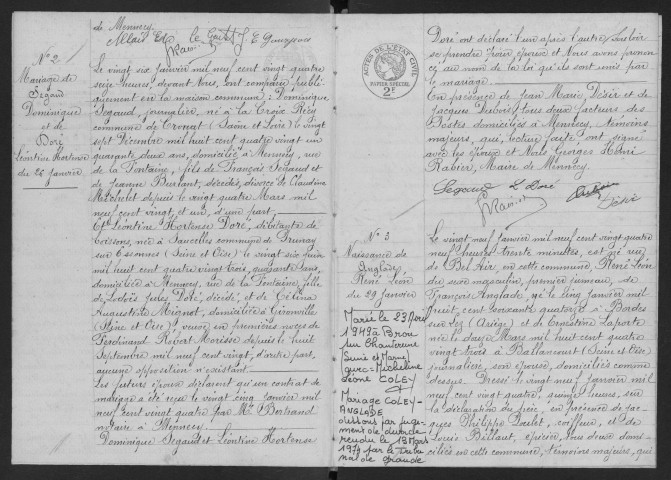 de Mennecy.
N° 2
Mariage de
Segaud
Dominique
et de
Doré
Léontine Hortense
du 26 janvier
Le vingt six janvier mil neuf cent vingt quatre
seize heures, devant Nous, ont comparu publi-
quement en la maison commune : Dominique
Segaud, journalier, né à la Croix
commune de Cronat (Saône et Loire) le vingt
sept Décembre mil huit cent quatre vingt un
quarante deux ans, domicilié à Mennecy, rue
de la Fontaine, fils de François Segaud et
de Jeanne Burlant, décédés, divorcé de Claudine
depuis le vingt quatre Mars mil
neuf cent vingt et un, d'une part,
Et Léontine Hortense Doré, débitante de
boissons, née à Saucelles commune de Prunay
sur Essonnes (Seine et Oise) le vingt six juin
mil huit cent quatre vingt trois, quarante ans,
domiciliée à Mennecy, rue de la Fontaine, fille
de Jules Doré, décédé, et de Célina
Augustine Mignot, domiciliée à Gironville
(Seine et Oise), veuve en premières noces de
Ferdinand Robert Morisse depuis le huit
Septembre mil neuf cent vingt, d'autre part,
aucune opposition n'existant.
Les futurs époux déclarent qu'un contrat de
mariage a été reçu le vingt cinq janvier mil
neuf cent vingt quatre par Me Bertrand
notaire à Mennecy
Dominique Segaud et Léontine Hortense
Doré ont déclaré l'un après l'autre vouloir
se prendre pour époux et Nous avons pronon-
cé, au nom de la loi qu'ils sont unis par
le mariage.
En présence de Jean Marie Désir et de
Jacques Dubois, tous deux facteurs des
Postes domiciliés à Mennecy, témoins
majeurs, qui, lecture faite ont signé
avec les époux et Nous Georges Henri
Rabier, Maire de Mennecy.
ACTES DE L'ÉTAT CIVIL
PAPIER SPÉCIAL
2F
Segaud L Doré
N° 3
Naissance de
Anglade
René Léon
du 29 janvier
Marié le 23 Avril
1949 à Brou
sur Chantereine
Seine et Marne
avec Micheline
Léone COLEY
Mariage COLEY-
ANGLADE
dissous par juge-
ment de divorce
rendu le 13 Mars
1979 par le Tribu
nal de grande
Le vingt neuf janvier mil neuf cent vingt quatre
neuf heures trente minutes, est né rue
de Bel Air, en cette commune, René Léon
du sexe masculin, premier jumeau, de
François Anglade, né le cinq janvier mil
huit cent soixante quatorze à Bordes
sur Lez (Ariège) et de Ernestine Laporte
née le douze Mars mil huit cent quatre
vingt trois à Ballancourt (Seine et Oise)
journalière, son épouse, domiciliés comme
dessus. Dressé le vingt neuf janvier mil
neuf cent vingt quatre, heures, sur
la déclaration du père, en présence de Jac-
ques Philippe Doulet, coiffeur, et de
Louis Billaut, épicier, tous deux domi-
ciliés en cette commune, témoins majeurs, qui,